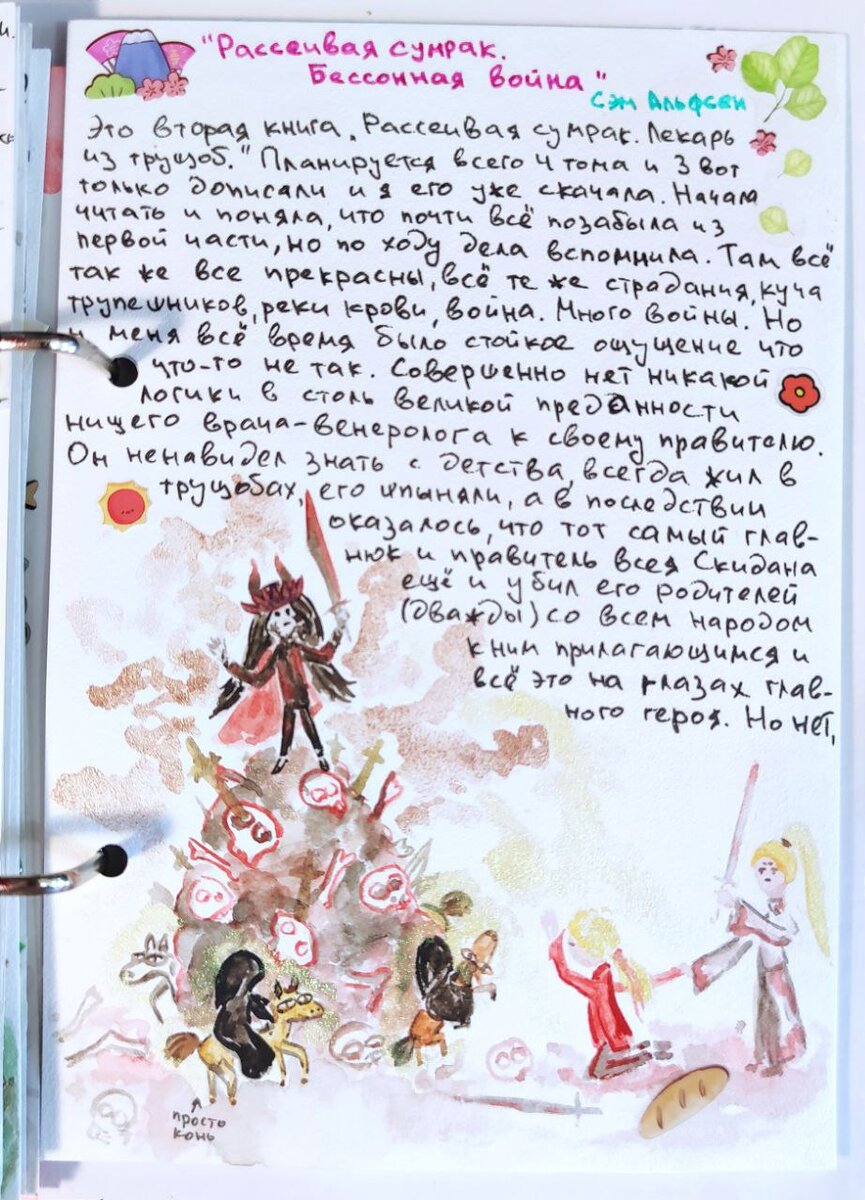 "Рассеивая сумрак.
Бессонная война"
Сэм Альфсен
Это вторая книга "Рассеивая сумрак. Лекарь
из трущоб." Планируется всего 4 тома и 3 вот
только дописали и я его уже скачала. Начала
читать и поняла, что почти всё позабыла из
первой части, но по ходу дела вспомнила. Там всё
так же все прекрасны, всё те же страдания, куча
трупешников, реки крови, война. Много войны. Но
у меня всё время было стойкое ощущение что
что-то не так. Совершенно нет никакой
логики в столь великой преданности
нищего врача-венеролога к своему правителю.
Он ненавидел знать с детства, всегда жил в
трущобах, его шпыняли, а в последствии
оказалось, что тот самый глав-
нюк и правитель всея Скидана
ещё и убил его родителей
(дважды) со всем народом
к ним прилагающимся и
всё это на глазах глав-
ного героя. Но нет,
просто
конь